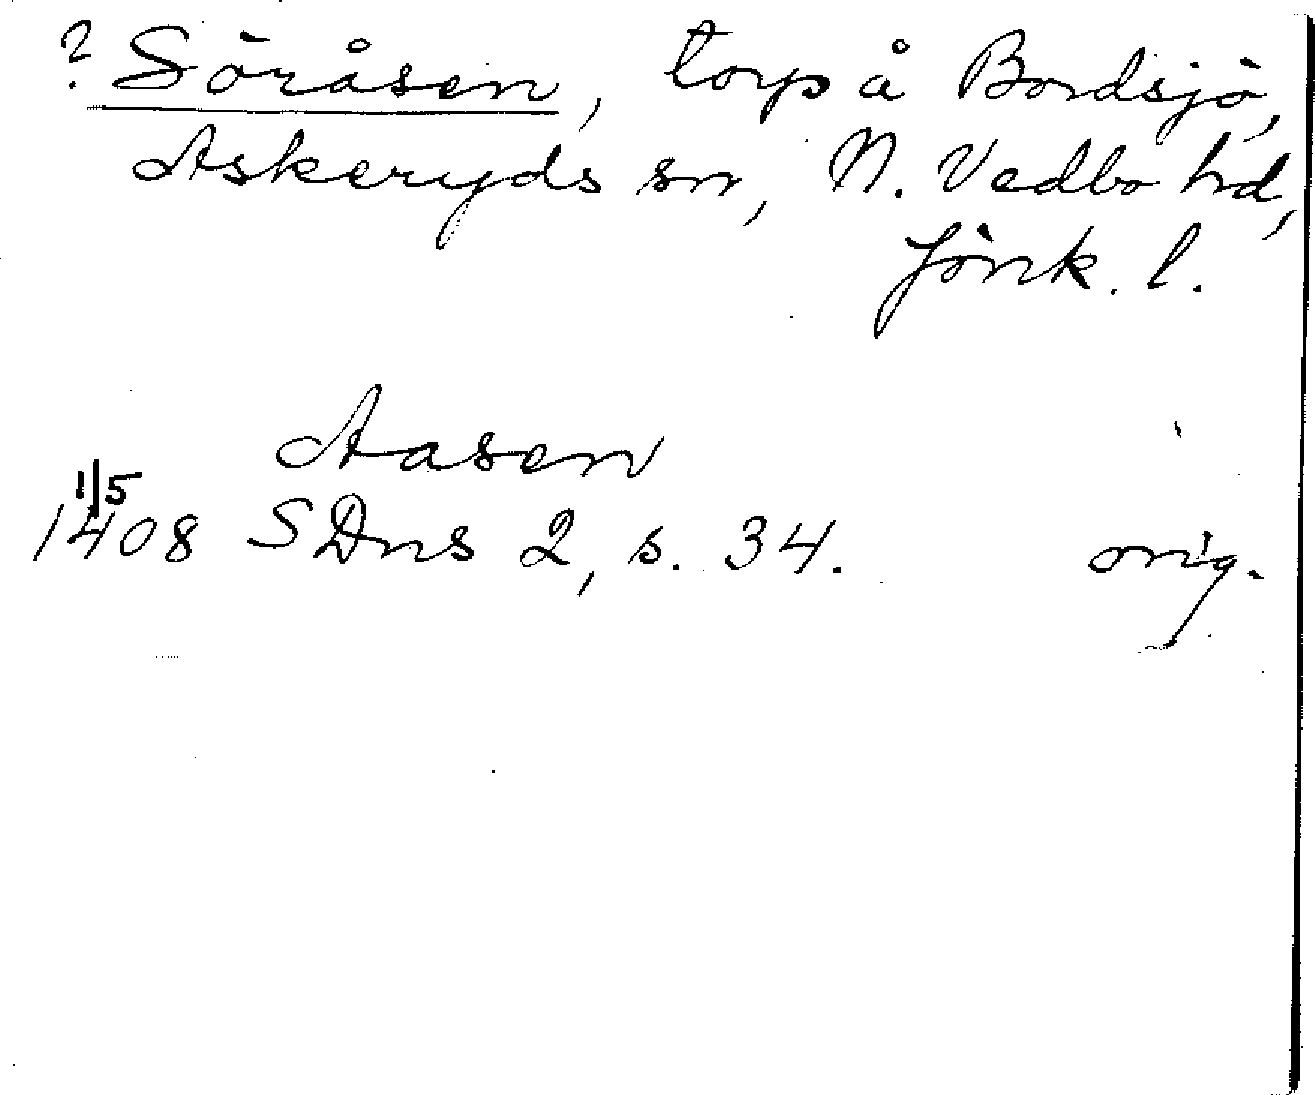 ? Söråsen, torp å Bordsjö,
Askeryds sn, N. Vedbo hd,
Jönk. l.
Aasen
1/5
1408 SDns 2, s. 34. orig.